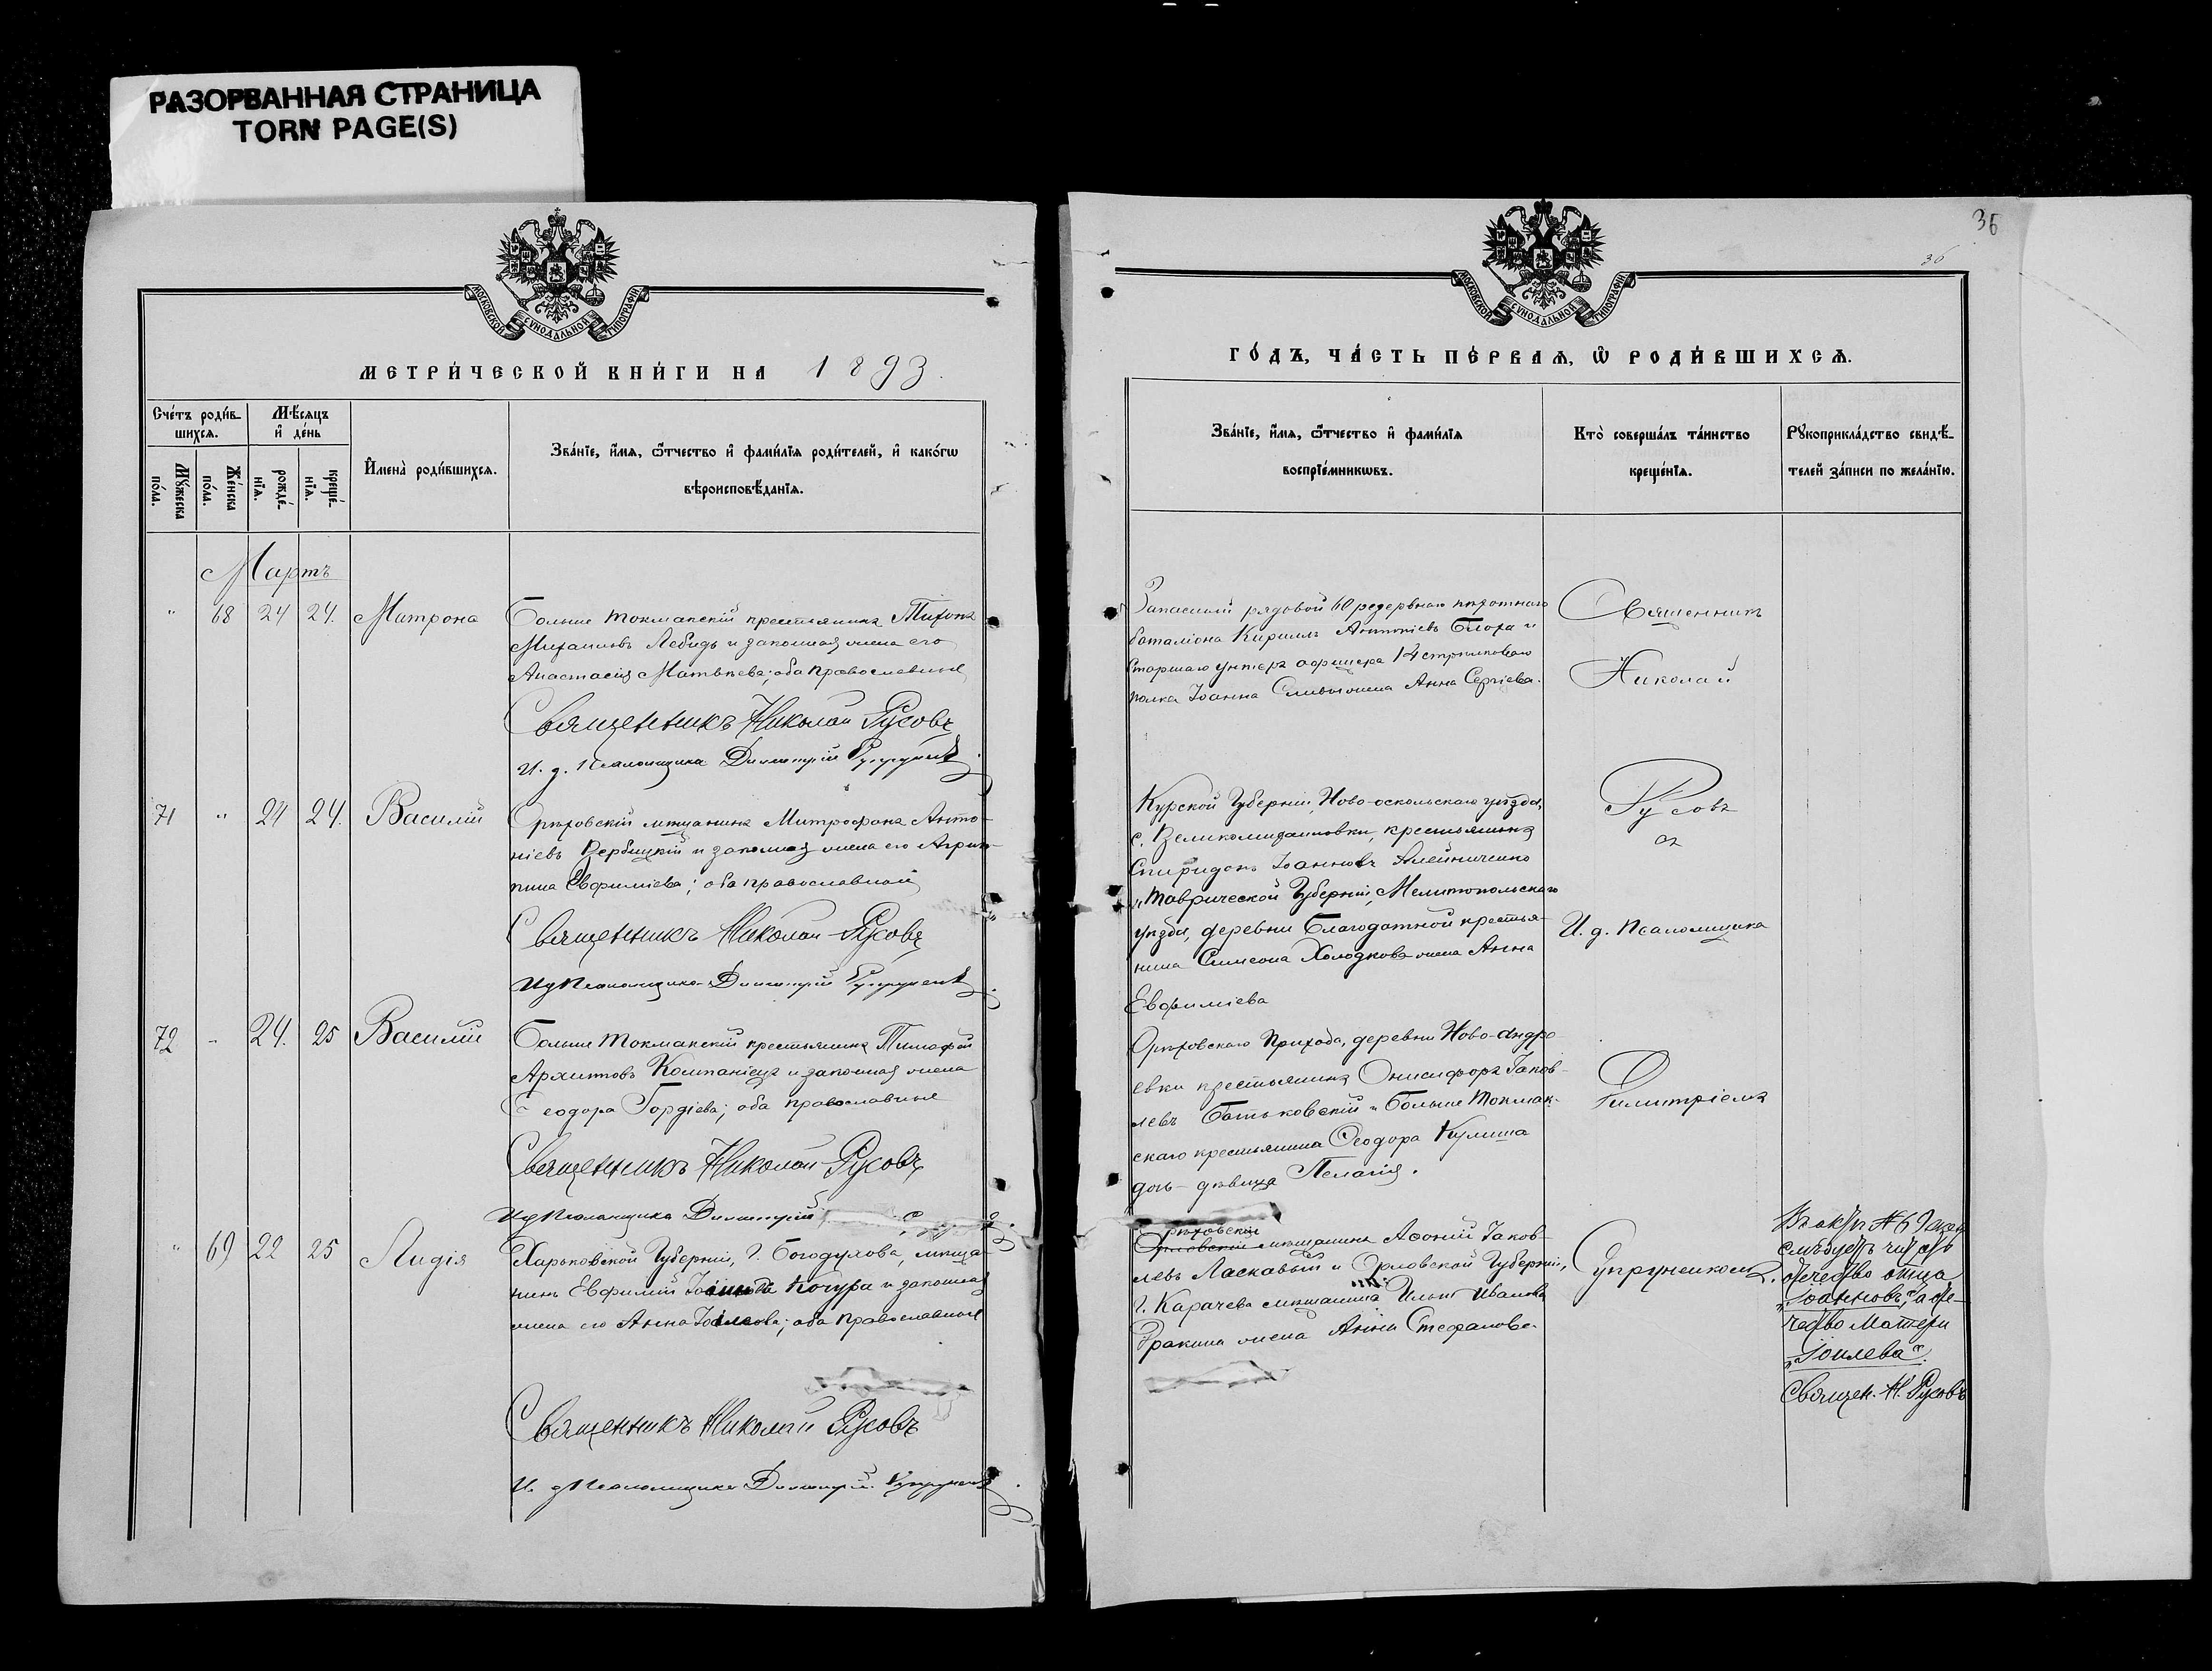 РАЗОРВАННАЯ СТРАНИЦА
TORN PAGE(S)
МОСКОВСКОЙ СѴНОДАЛЬНОЙ ТИПОГРАФІИ
МЕТРИ́ЧЕСКОЙ КНИ́ГИ НА 1893.
Сче́тъ роди́в-
шихсѧ.
Мѣ́сѧцъ
и҆ де́нь
Мꙋ́жеска
по́ла.
Же́нска
по́ла.
рожде́-
нїѧ.
креще́-
нїѧ.
И҆мена̀ роди́вшихсѧ.
Зва́нїе, и҆́мѧ, ѻ҆́тчество и҆ фами́лїѧ роди́телей, и҆ како́гѡ
вѣроисповѣ́данїѧ.
Мартъ
" 68 24 24. Матрона
Больше Токмакскій крестьянинъ Тихонъ
Михаиловъ Лебидь и законная жена его
Анастасія Матвѣева; оба православные
Священникъ Николай Русовъ
И. д. Псаломщика Димитрій
71 " 24 24. Василій
Орѣховскій мѣщанинъ Митрофанъ Анто-
ніевъ Вербицкій и законная жена его Агрип-
пина Евфиміева; оба православной
Священникъ Николай Русовъ
И д Псаломщика Димитрій
72 " 24. 25 Василій
Больше Токмакскій крестьянинъ Тимофей
Архиповъ Компаніецъ и законная жена
Ѳеодора Гордіева; оба православные
Священникъ Николай Русовъ
И д Псаломщика Димитрій
" 69 22 25 Лидія
Харьковской Губерніи, г. Богодухова, мѣща-
нинъ Евфимій Кочура и законная
жена его Анна; оба православные
Священникъ Николай Русовъ
И. д Псаломщика Димитрій
36
36
МОСКОВСКОЙ СѴНОДАЛЬНОЙ ТИПОГРАФІИ
ГО́ДЪ, ЧА́СТЬ ПЕ́РВАѦ, Ѡ҆ РОДИ́ВШИХСѦ.
Зва́нїе, и҆́мѧ, ѻ҆́тчество и҆ фами́лїѧ
воспрїе́мникѡвъ.
Кто̀ соверша́лъ та́инство
креще́нїѧ.
Рꙋкоприкла́дство свидѣ́-
телей за́писи по жела́нїю.
Запасный рядовой 60 резервнаго пѣхотнаго
баталіона Кириллъ Антоніевъ Блоха и
Старшаго унтеръ офицера 14 стрѣлковаго
полка Іоанна жена Анна Сергіева.
Курской Губерніи, Ново-оскольскаго уѣзда,
с. Великомихаиловки, крестьянинъ
Спиридонъ Іоанновъ Алейниченко
и Таврической Губерніи, Мелитопольскаго
уѣзда, деревни Благодатной крестья-
нина Симеона Холодкова жена Анна
Евфиміева
Орѣховскаго Прихода, деревни Ново-Андре
евки крестьянинъ Онисифоръ Іаков-
левъ Батьковскій и Больше Токмак-
скаго крестьянина Ѳеодора Кулиша
дочь-дѣвица Пелагія.
Орѣховскій
мѣщанинъ Афоній Іаков-
левъ Ласкавый и Орловской Губерніи,
г. Карачева мѣщанина Ильи Иванова
Дракина жена Анна Стефанова.
Священникъ
Николай
Русовъ
съ
И. д. Псаломщика
Димитріемъ
Супруненкомъ.
Въ актѣ № 69
слѣдуетъ читать
отчество отца
"Іоанновъ", а отче-
чество матери
"Іоилева".
Священ. Н. Русовъ